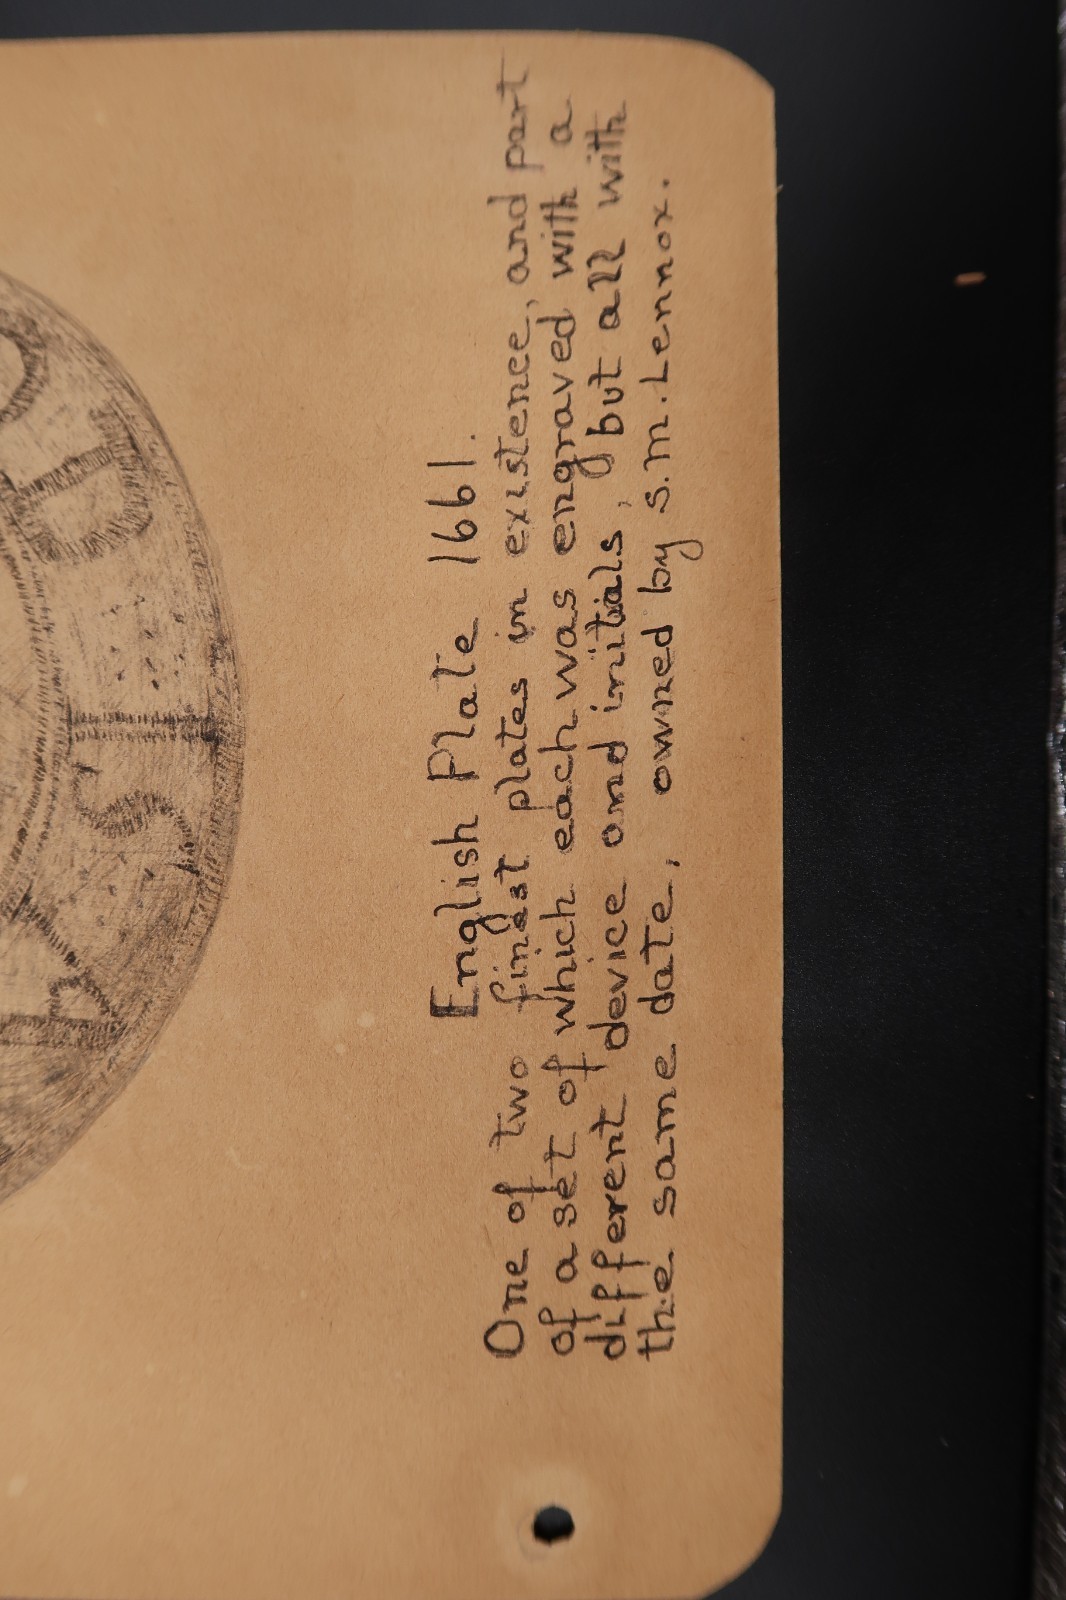 English Plate 1661.
One of two finest plates in existence, and part
of a set of which each was engraved with a
different device and initials, but all with
the same date, owned by S.M.Lennox.